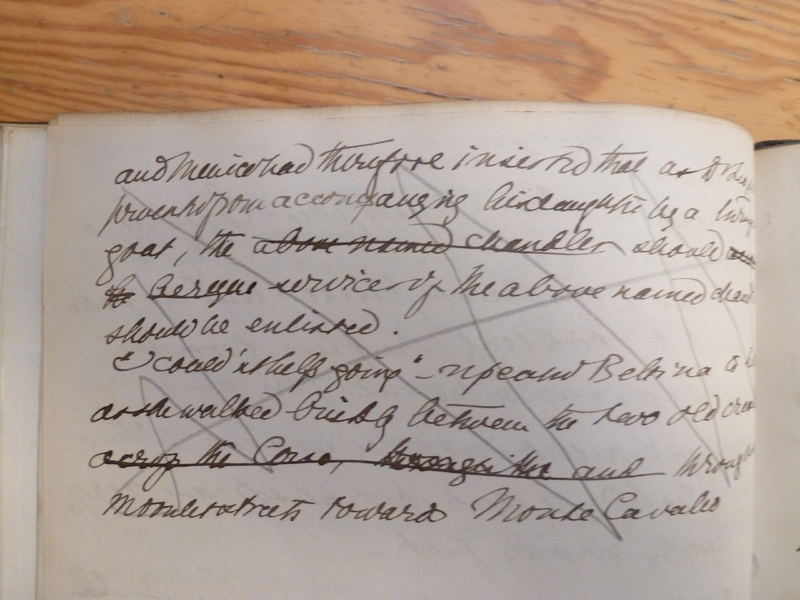 and Menico had therefore insisted that as Dr
prevented from accompanying his daughter by a
gout, the above named chandler should
the Bersque services of the above named
should be enlisted.
"I couldn't help going" - Belsina to
as she walked briskly between the two old
across the Corso, through the and through
streets toward Monte Cavallo